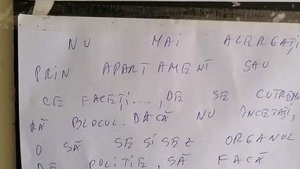 NU MAI ALERGAȚI
PRIN APARTAMENT SAU
CE FACEȚI...., DE SE CUTREMU
RĂ BLOCUL. DACĂ NU ÎNCETAȚI,
O SĂ SESISEZ ORGANUL
DE POLIȚIE, SĂ FACĂ